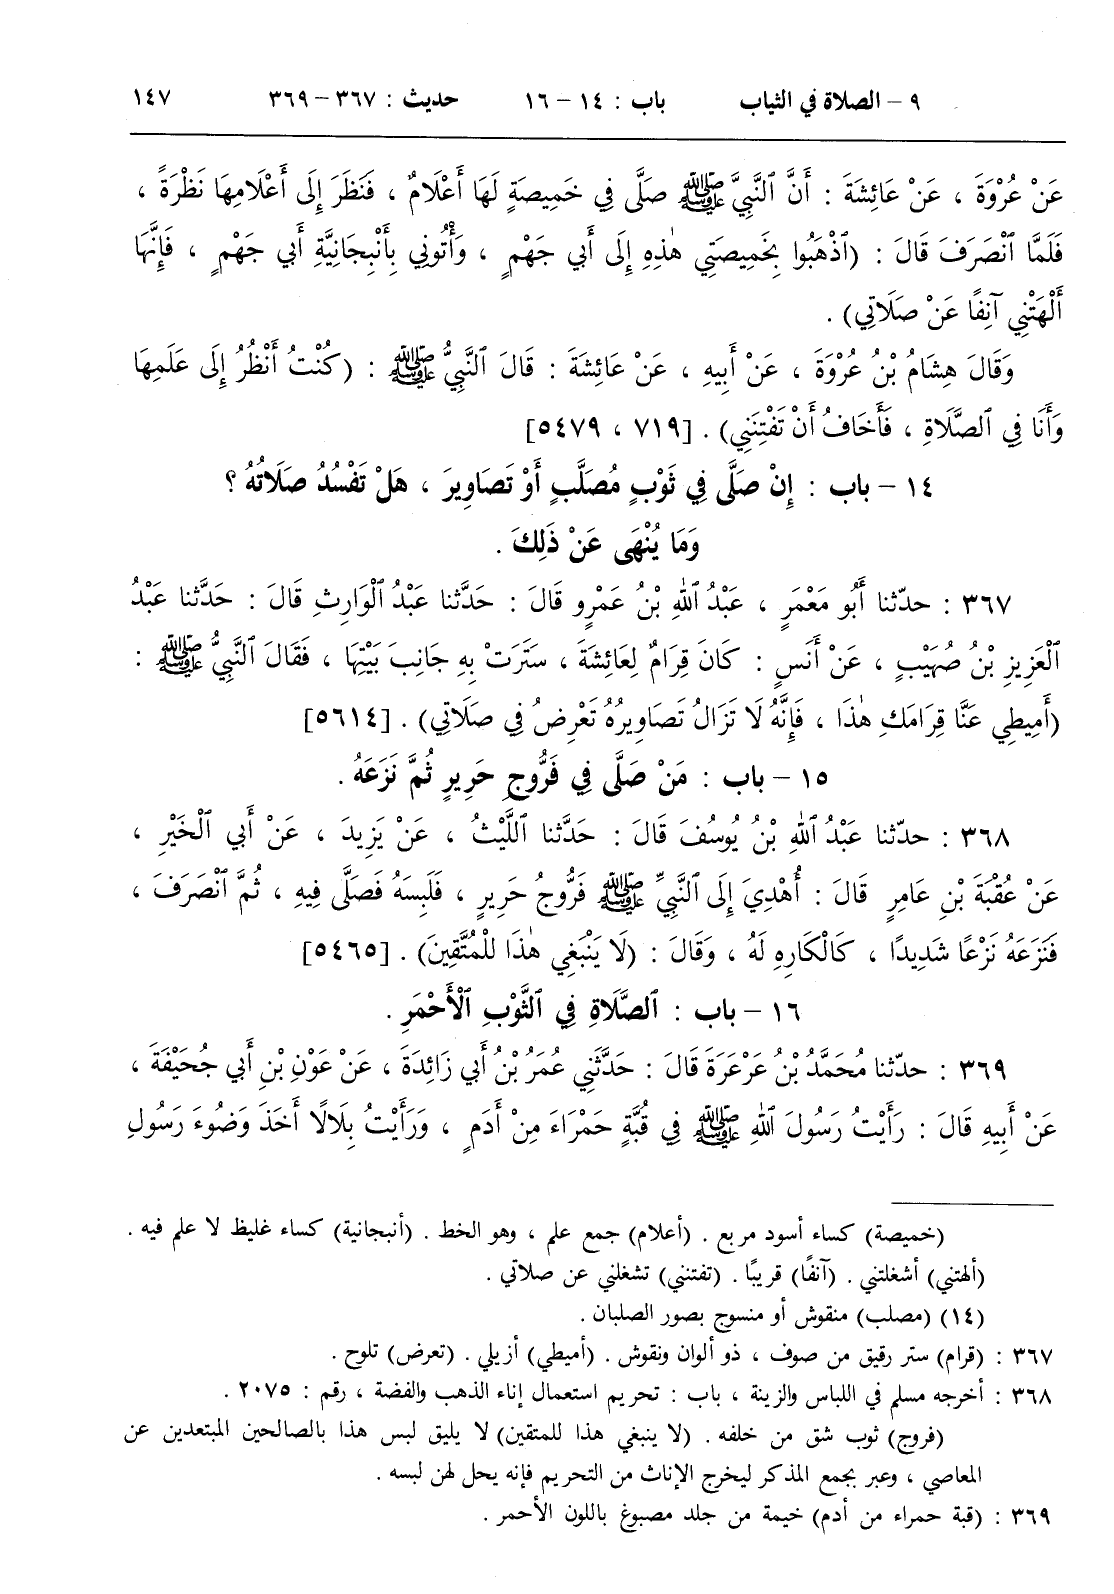 ٩ – الصلاة في الثياب باب : ١٤ – ١٦ حديث : ٣٦٧ – ٣٦٩ ١٤٧
عَنْ عُرْوَةَ ، عَنْ عَائِشَةَ : أَنَّ ٱلنَّبِيَّ ﷺ صَلَّى فِي خَمِيصَةٍ لَهَا أَعْلَامٌ ، فَنَظَرَ إِلَى أَعْلَامِهَا نَظْرَةً ،
فَلَمَّا ٱنْصَرَفَ قَالَ : (ٱذْهَبُوا بِخَمِيصَتِي هٰذِهِ إِلَى أَبِي جَهْمٍ ، وَأْتُونِي بِأَنْبِجَانِيَّةِ أَبِي جَهْمٍ ، فَإِنَّهَا
أَلْهَتْنِي آنِفًا عَنْ صَلَاتِي) .
وَقَالَ هِشَامُ بْنُ عُرْوَةَ ، عَنْ أَبِيهِ ، عَنْ عَائِشَةَ : قَالَ ٱلنَّبِيُّ ﷺ : (كُنْتُ أَنْظُرُ إِلَى عَلَمِهَا
وَأَنَا فِي ٱلصَّلَاةِ ، فَأَخَافُ أَنْ تَفْتِنَنِي) . [٧١٩ ، ٥٤٧٩]
١٤ – باب : إِنْ صَلَّى فِي ثَوْبٍ مُصَلَّبٍ أَوْ تَصَاوِيرَ ، هَلْ تَفْسُدُ صَلَاتُهُ ؟
وَمَا يُنْهَى عَنْ ذَلِكَ .
٣٦٧ : حدّثنا أَبُو مَعْمَرٍ ، عَبْدُ ٱللهِ بْنُ عَمْرٍو قَالَ : حَدَّثنا عَبْدُ ٱلْوَارِثِ قَالَ : حَدَّثنا عَبْدُ
ٱلْعَزِيزِ بْنُ صُهَيْبٍ ، عَنْ أَنَسٍ : كَانَ قِرَامٌ لِعَائِشَةَ ، سَتَرَتْ بِهِ جَانِبَ بَيْتِهَا ، فَقَالَ ٱلنَّبِيُّ ﷺ :
(أَمِيطِي عَنَّا قِرَامَكِ هٰذَا ، فَإِنَّهُ لَا تَزَالُ تَصَاوِيرُهُ تَعْرِضُ فِي صَلَاتِي) . [٥٦١٤]
١٥ – باب : مَنْ صَلَّى فِي فَرُّوجِ حَرِيرٍ ثُمَّ نَزَعَهُ .
٣٦٨ : حدّثنا عَبْدُ ٱللهِ بْنُ يُوسُفَ قَالَ : حَدَّثنا ٱللَّيْثُ ، عَنْ يَزِيدَ ، عَنْ أَبِي ٱلْخَيْرِ ،
عَنْ عُقْبَةَ بْنِ عَامِرٍ قَالَ : أُهْدِيَ إِلَى ٱلنَّبِيِّ ﷺ فَرُّوجُ حَرِيرٍ ، فَلَبِسَهُ فَصَلَّى فِيهِ ، ثُمَّ ٱنْصَرَفَ ،
فَنَزَعَهُ نَزْعًا شَدِيدًا ، كَالْكَارِهِ لَهُ ، وَقَالَ : (لَا يَنْبَغِي هٰذَا لِلْمُتَّقِينَ) . [٥٤٦٥]
١٦ – باب : ٱلصَّلَاةِ فِي ٱلثَّوْبِ ٱلْأَحْمَرِ .
٣٦٩ : حدّثنا مُحَمَّدُ بْنُ عَرْعَرَةَ قَالَ : حَدَّثَنِي عُمَرُ بْنُ أَبِي زَائِدَةَ ، عَنْ عَوْنِ بْنِ أَبِي جُحَيْفَةَ ،
عَنْ أَبِيهِ قَالَ : رَأَيْتُ رَسُولَ ٱللهِ ﷺ فِي قُبَّةٍ حَمْرَاءَ مِنْ أَدَمٍ ، وَرَأَيْتُ بِلَالًا أَخَذَ وَضُوءَ رَسُولِ
(خميصة) كساء أسود مربع . (أعلام) جمع علم ، وهو الخط . (أنبجانية) كساء غليظ لا علم فيه .
(ألهتني) أشغلتني . (آنفًا) قريبًا . (تفتنني) تشغلني عن صلاتي .
(١٤) (مصلب) منقوش أو منسوج بصور الصلبان .
٣٦٧ : (قرام) ستر رقيق من صوف ، ذو ألوان ونقوش . (أميطي) أزيلي . (تعرض) تلوح .
٣٦٨ : أخرجه مسلم في اللباس والزينة ، باب : تحريم استعمال إناء الذهب والفضة ، رقم : ٢٠٧٥ .
(فروج) ثوب شق من خلفه . (لا ينبغي هذا للمتقين) لا يليق لبس هذا بالصالحين المبتعدين عن
المعاصي ، وعبر بجمع المذكر ليخرج الإناث من التحريم فإنه يحل لهن لبسه .
٣٦٩ : (قبة حمراء من أدم) خيمة من جلد مصبوغ باللون الأحمر .